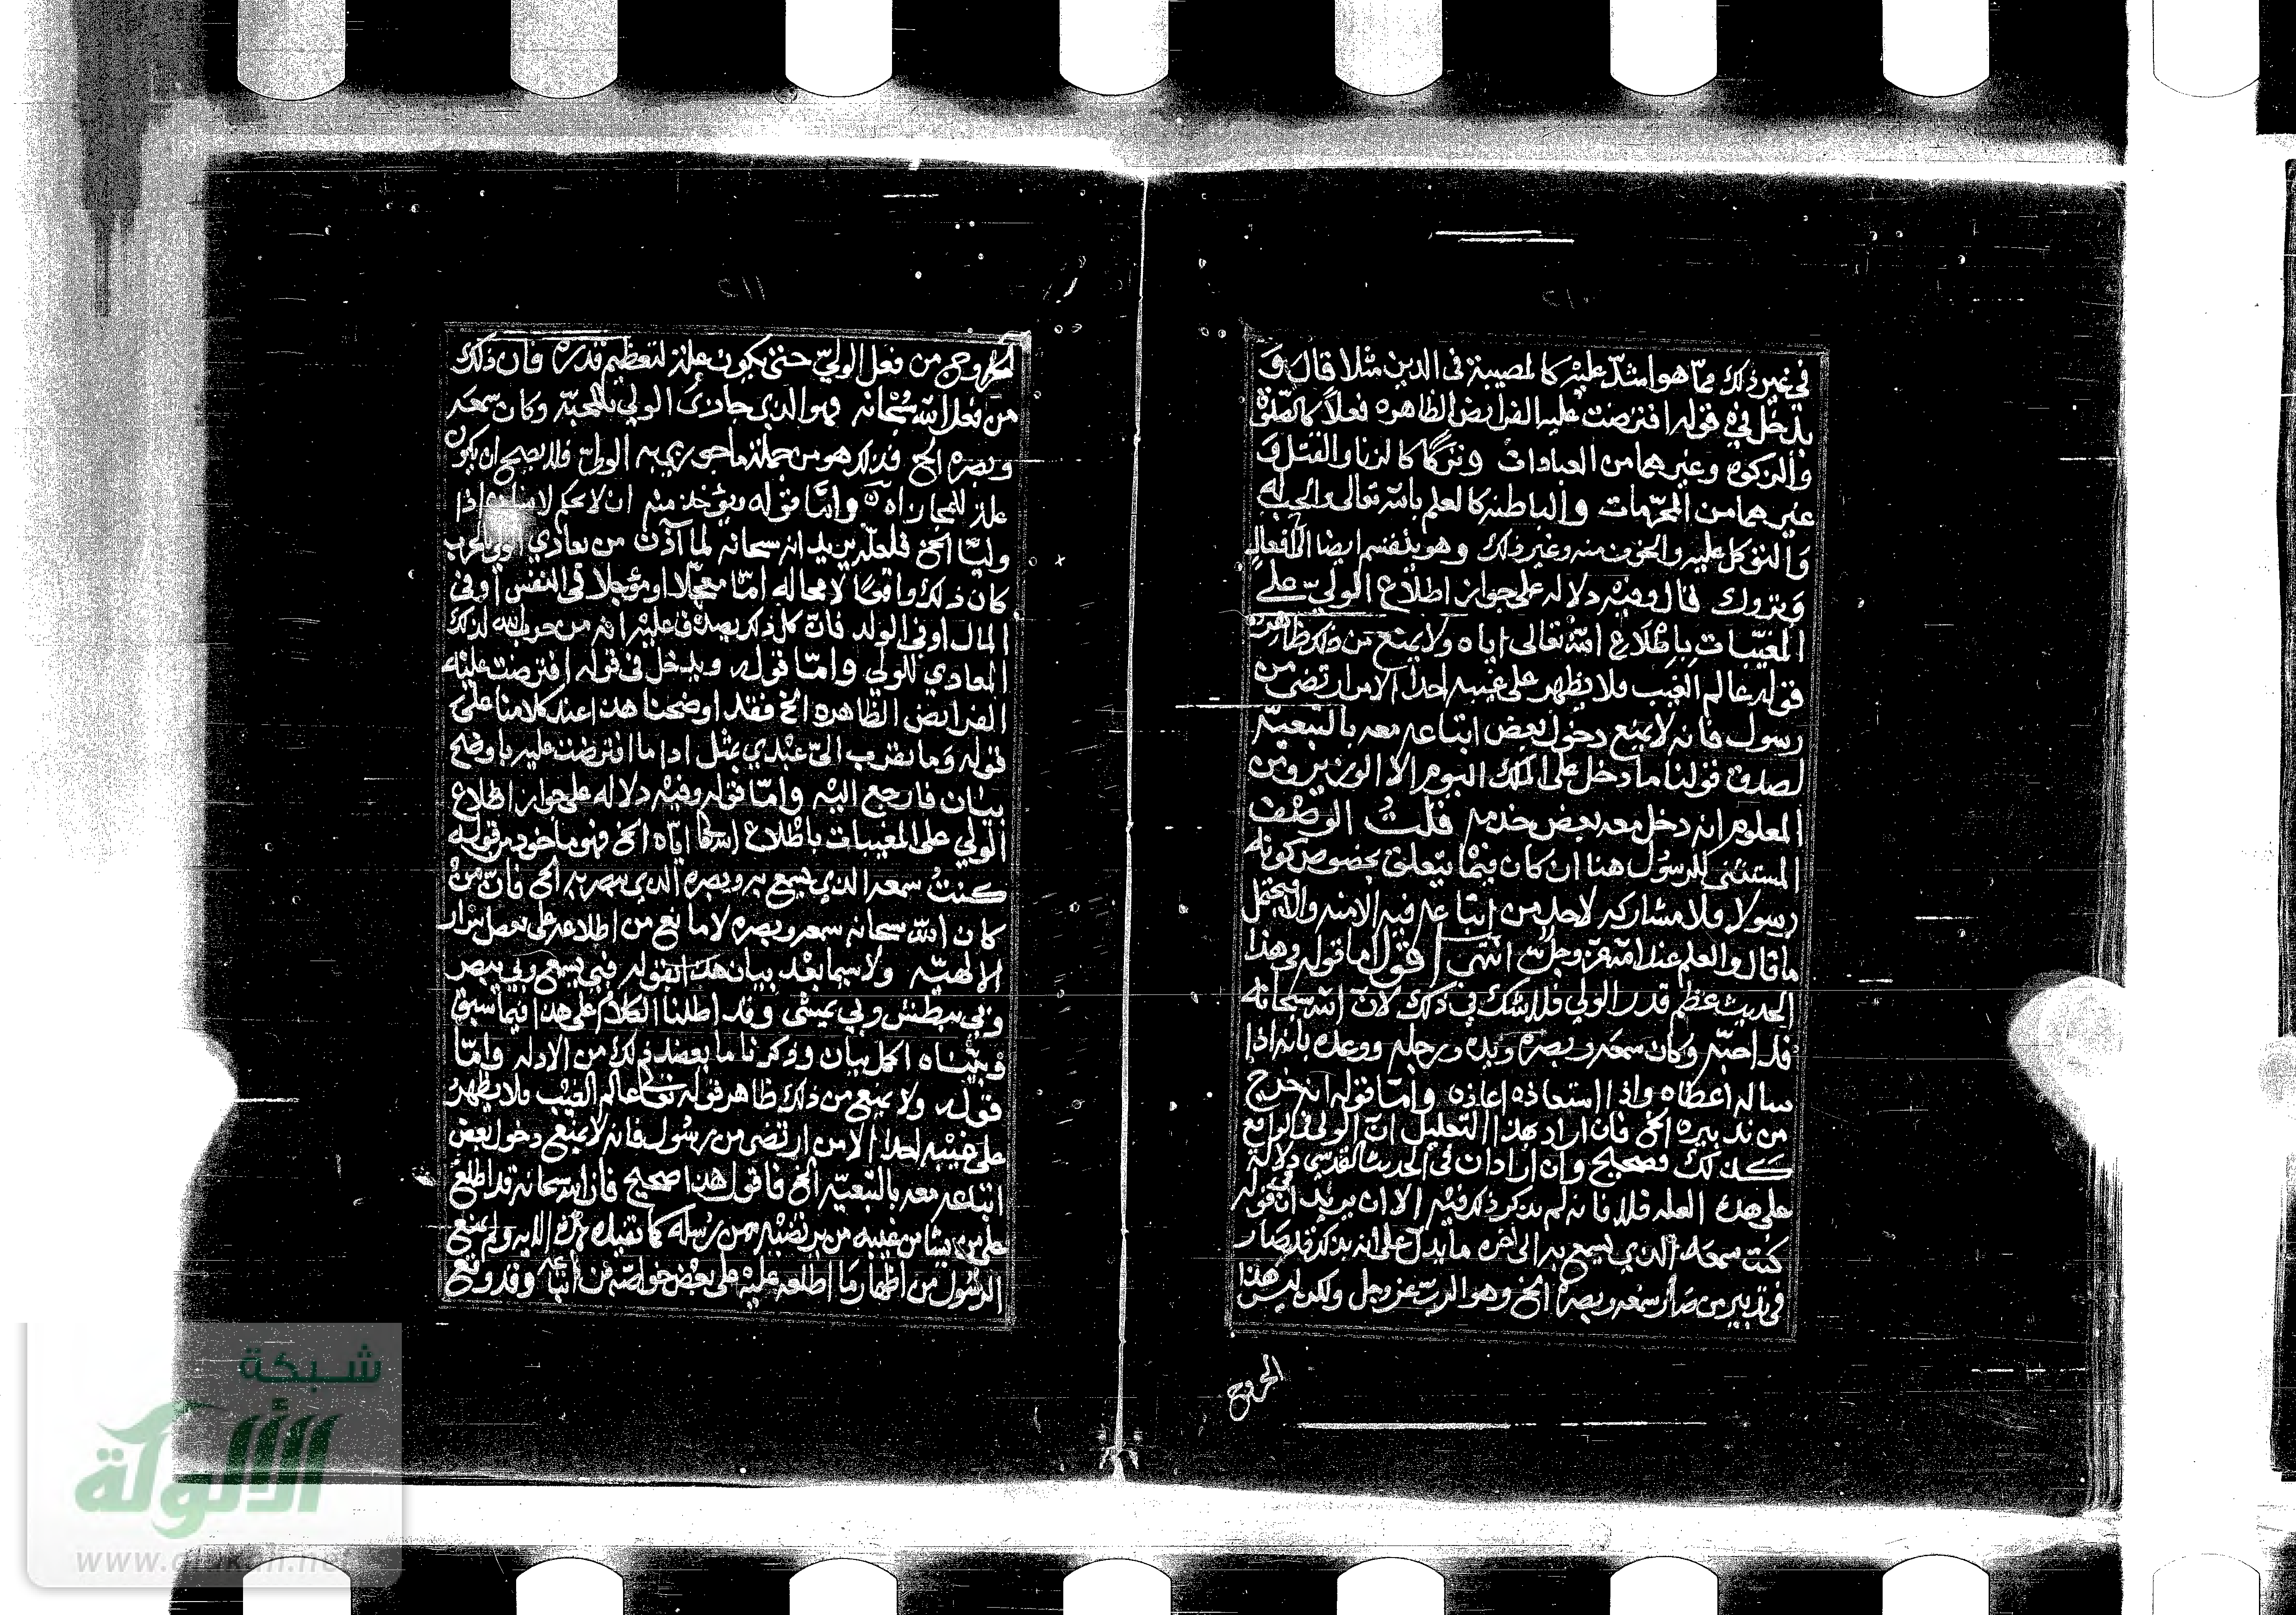 ٢١٠
في غير ذلك مما هو اشدّ عليه كالمصيبة في الدين مثلا قال وَ
يدخل في قوله افترضت عليه الفرايض الظاهره فعلاً كالصّلوة
والزكوة وغيرهما من العبادات وتركًا كالزنا والقتل وَ
غيرهما من المحرّمات والباطنه كالعلم بالله تعالى والحب له
وَالتوكل عليه والخوف منه وغير ذلك وهو ينقسم ايضا الى افعال
وَتروك قال وفيه دلاله على جواز اطلاع الوليّ على
المغيّبات باطْلاع اللهِ تعالى اياه ولا يمنع من ذلك ظاهر
قوله عالم الغَيب فلا يظهر على غيبه احدا الا من ارتضى من
رسول فانه لا يمنع دخول بعض اتباعه معه بالتبعيّه
لصدق قولنا ما دخل على الملك اليوم الا الوزير ومن
المعلوم انه دخل معه بعض خدمه قلتُ الوصْف
المستثنى للرسُول هنا ان كان فيْما يتعلق بخصوص كونه
رسولا فلا مشاركه لاحد من اتباعه فيه الا منه والا فيحتمل
ما قال والعلم عند الله عزّ وجلّ انتهى اقول اما قوله في هذا
الحديث عظم قدر الولي فلا شك في ذلك لانّ الله سبحانه
قد احبّه وكان سمعه وبصره ويده ورجله ووعده بانه اذا
ساله اعطاه واذا استعاذه اعاذه وامّا قوله انه خرج
من تدبيره الخ فان اراد بهذا التعليل انّ الولي في الواقع
كذلك فصحيح وان اراد ان في الحديث القدسي دلالة
على هذه العله فلا فانه لم يذكر ذلك فيْه الا ان يريد انّ في قوله
كنت سمعه الذي يسمع به الى اخره ما يدلّ على انه بذلك قد صار
في تدبير من صَار سمعه وبصره الخ وهو الربّ عز وجل ولكن ليْسَ هذا
الخروج
٢١١
الخروج من فعل الوليّ حتى يكون علة لتعظيم قدره فان ذلك
من فعل الله سُبْحانه فهو الذي جازى الولي بالمحبّه وكان سمعه
وبصره الخ فذلك هو من جملة ما جوزي به الوليّ فلا يصح ان يكون
علة للمجازاه وامَّا قوله ويؤخذ منه ان لا يحكم لانسان اذا
وليّا الخ فلعلّه يريد انه سبحانه لما آذن من يعادي الولي بالحرب
كان ذلك واقعًا لا محاله امّا معجّلا او مؤجلا في النفس او في
المال او في الولد فانّ كل ذلك يصدق عليْه انه من حرب الله لذلك
المعادي للولي وامّا قوله ويدخل في قوله افترضت عليه
الفرايض الظاهره الخ فقد اوضحنا هذا عند كلامنا على
قوله وَما تقرب الىّ عبْدي بمثل اداء ما افترضت عليه باوضح
بيان فارجع اليْه وامّا قوله وفيْه دلاله على جواز اطلاع
الولي على المغيبات باطْلاع الله تعالى ايّاه الخ فهو ماخوذ من قوله
كنتُ سمعه الذي يسمع به وبصره الذي يبصر به الخ فانّ منْ
كان الله سبحانه سمعه وبصره لا مانع من اطلاعه على بعض اسرار
الالهيّه ولا سيما بعْد بيان هذا بقوله فبي يسمع وبي يبصر
وبي يبطش وبي يمشي وقد اطلنا الكلام على هذا فيما سبق
وبيّناه اكمل بيان وذكرنا ما يعضد ذلك من الادله وامّا
قوله ولا يمنع من ذلك ظاهر قوله تعالى عالم الغيْب فلا يظهرُ
على غيْبه احدا الا من ارتضى من رسُول فانه لا يمنع دخول بعض
اتباعه معه بالتبعيّه الخ فاقول هذا صحيح فان الله سبحانه قد اطلع
على من يشا من غيبه من يرتضيْه من رسله كما تفيده هذه الايه ولم يمنع
الرسُول من اظهار ما اطلعه عليْه على بعْض خواصّه من اتباعه وقد وقع
شبكة
الألوكة